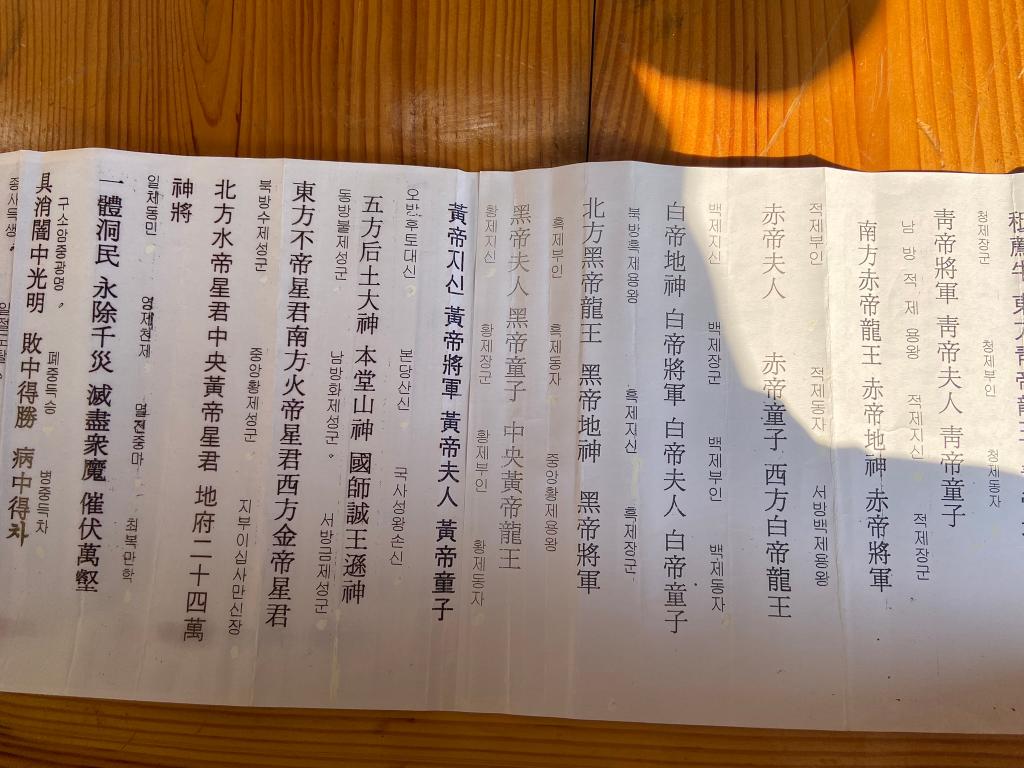 청제장군 청제부인 청제동자
靑帝將軍 靑帝夫人 靑帝童子
남방적제용왕 적제지신 적제장군
南方赤帝龍王 赤帝地神 赤帝將軍
적제부인 적제동자 서방백제용왕
赤帝夫人 赤帝童子 西方白帝龍王
백제지신 백제장군 백제부인 백제동자
白帝地神 白帝將軍 白帝夫人 白帝童子
북방흑제용왕 흑제지신 흑제장군
北方黑帝龍王 黑帝地神 黑帝將軍
흑제부인 흑제동자 중앙황제용왕
黑帝夫人 黑帝童子 中央黃帝龍王
황제지신 황제장군 황제부인 황제동자
黃帝지신 黃帝將軍 黃帝夫人 黃帝童子
오방후토대신 본당산신 국사성왕손신
五方后土大神 本堂山神 國師誠王遜神
동방불제성군 남방화제성군。 서방금제성군
東方不帝星君南方火帝星君西方金帝星君
북방수제성군 중앙황제성군 지부이십사만신장
北方水帝星君中央黃帝星君 地府二十四萬
神將
일체동민 영제천재 멸진중마 최복만학
一體洞民 永除千災 滅盡衆魔 催伏萬壑
구소암중광명。 폐중득승 병중득차
具消闇中光明。 敗中得勝 病中得차
중사득생。